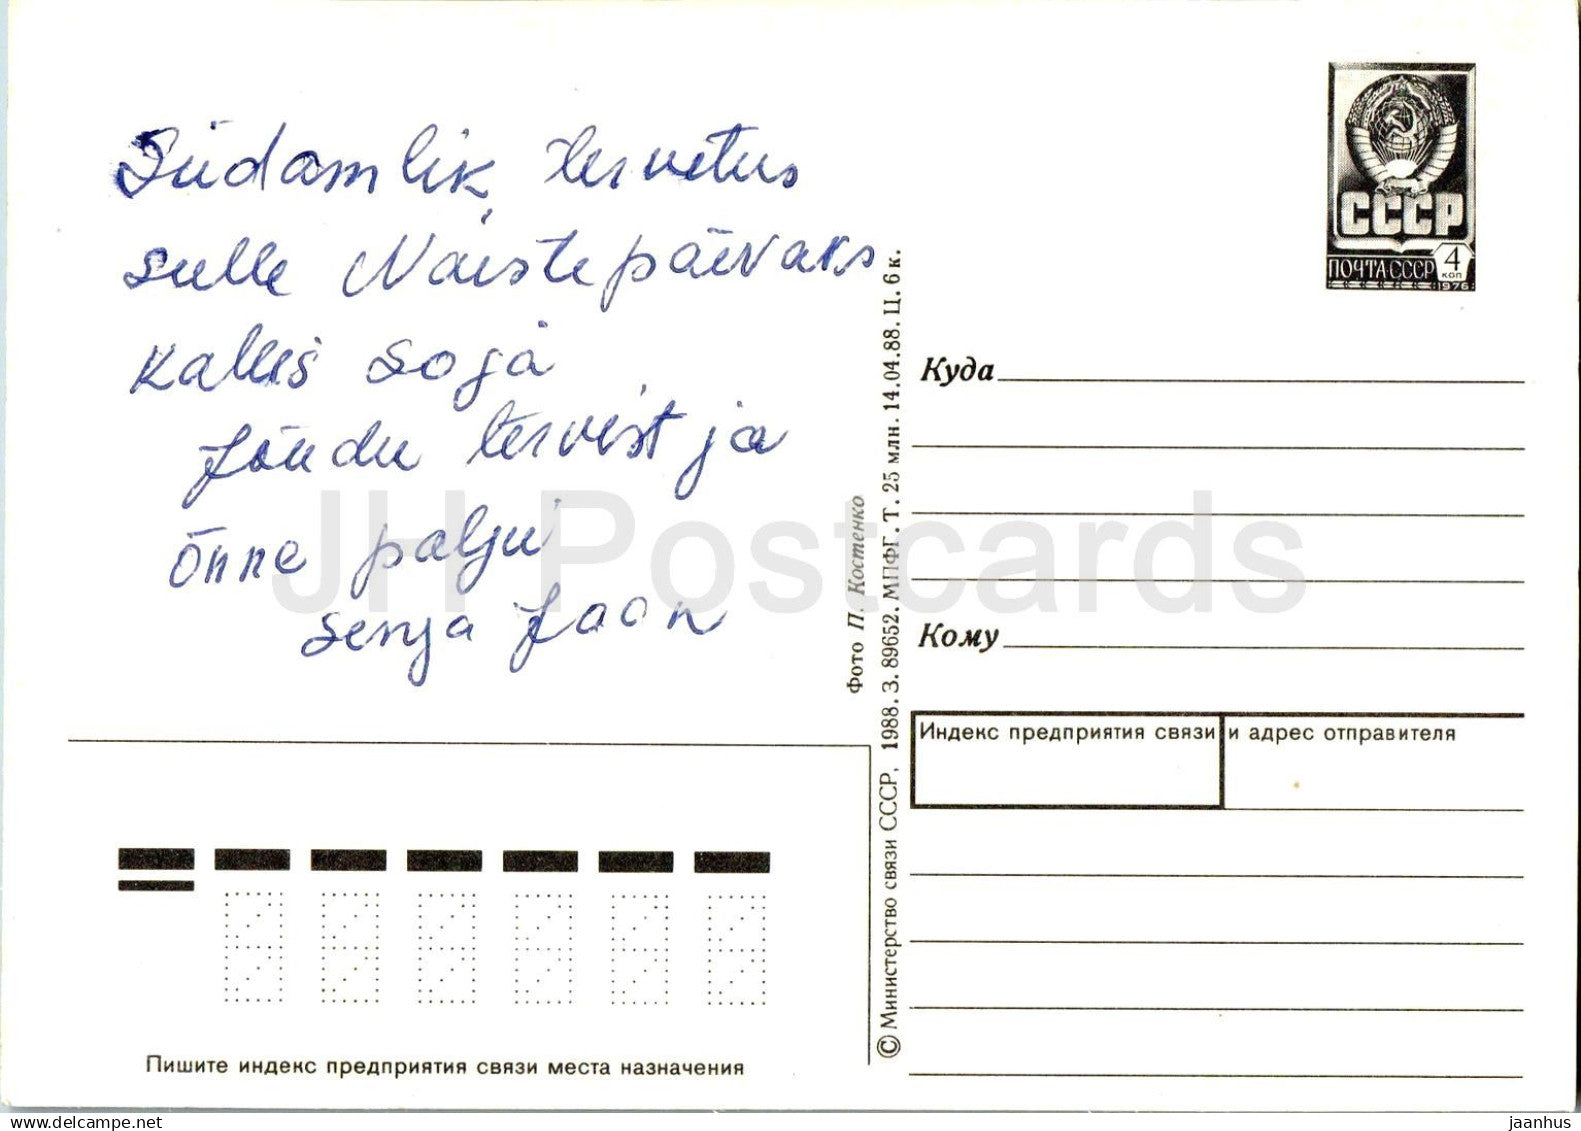 Südamlik tervetus
sulle Naistepäevaks
kallis Soja
Jõudu tervist ja
õnne palju
Senja Jaan
CCCP
ПОЧТА СССР 4 коп
1976
Куда
Кому
Индекс предприятия связи и адрес отправителя
Фото П. Костенко
© Министерство связи СССР, 1988. З. 89652. МПФГ. Т. 25 млн. 14.04.88. Ц. 6 к.
Пишите индекс предприятия связи места назначения
JH Postcards
jaanhus